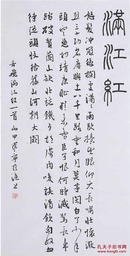 滿江紅
怒髮冲冠憑欄處瀟瀟雨歇抬望眼仰天長嘯壯懷激
烈三十功名塵與土八千里路雲和月莫等閑白了少年頭
空悲切靖康耻猶未雪臣子恨何時滅駕長車踏
破賀蘭山缺壯志飢餐胡虜肉笑談渴飲匈奴血
待從頭收拾舊山河朝天闕
岳飛滿江紅一首